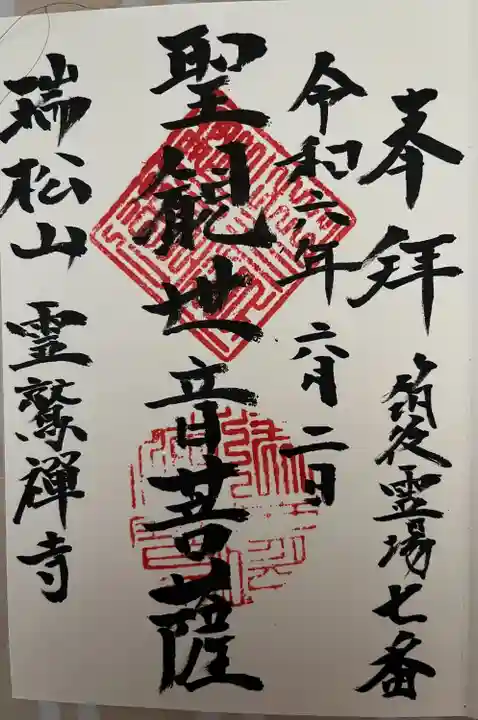 奉拝
筑後霊場七番
令和六年 六月二日
聖観世音菩薩
瑞松山 霊鷲禅寺